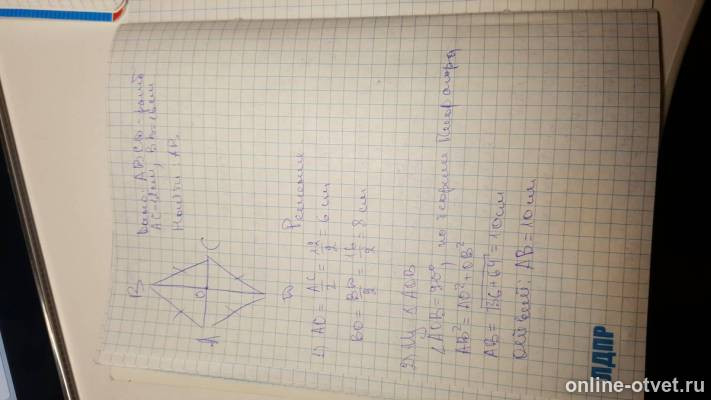 Дано: ABCD - ромб
AC=12см, BD=16см
Найти: AB.
B
O
C
A
D
Решение
1) AO = AC/2 = 12/2 = 6 см
BO = BD/2 = 16/2 = 8 см
2) Из △AOB
∠AOB = 90°, по теореме Пифагора
AB² = AO² + OB²
AB = √36+64 = 10 см
Ответ: AB = 10 см
ЛДПР
online-otvet.ru